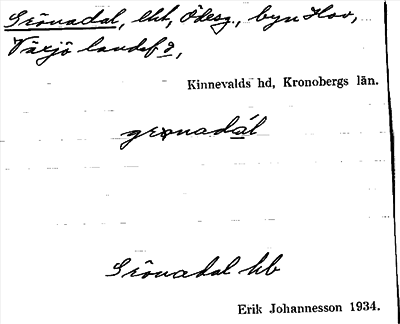 Grönadal, lht, Ödesg., byn Hov,
Växjö landsf ?,
Kinnevalds hd, Kronobergs län.
grønadál
Grönadal hb
Erik Johannesson 1934.